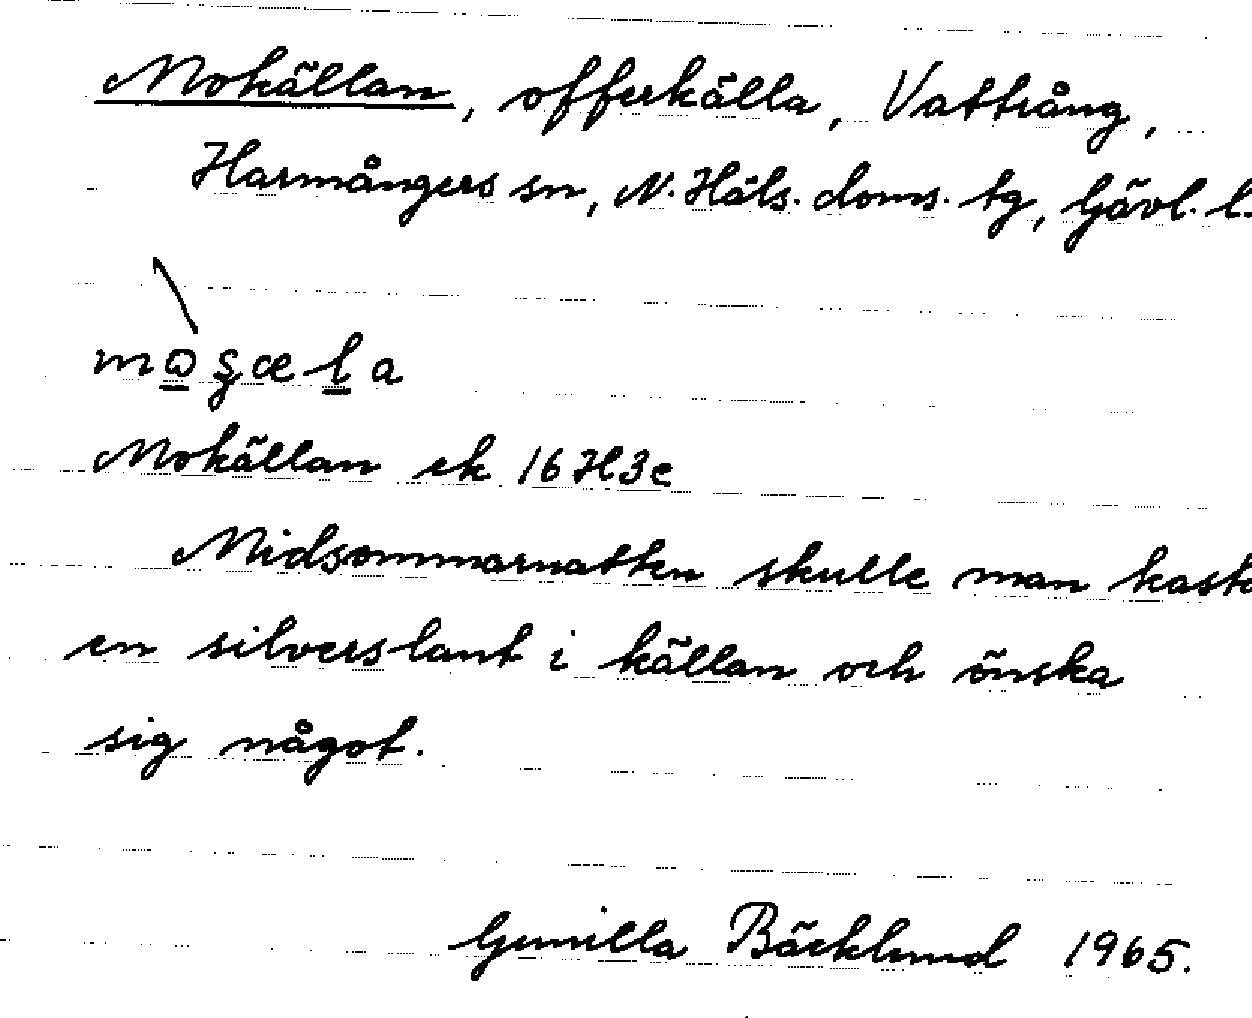 Mokällan, offerkälla, Vattrång,
Harmångers sn, N. Häls. doms. tg, Gävl. l.
Mokällan ek 16H3e
Midsommarnatten skulle man kast
en silverslant i källan och önska
sig något.
Gunilla Bäcklund 1965.